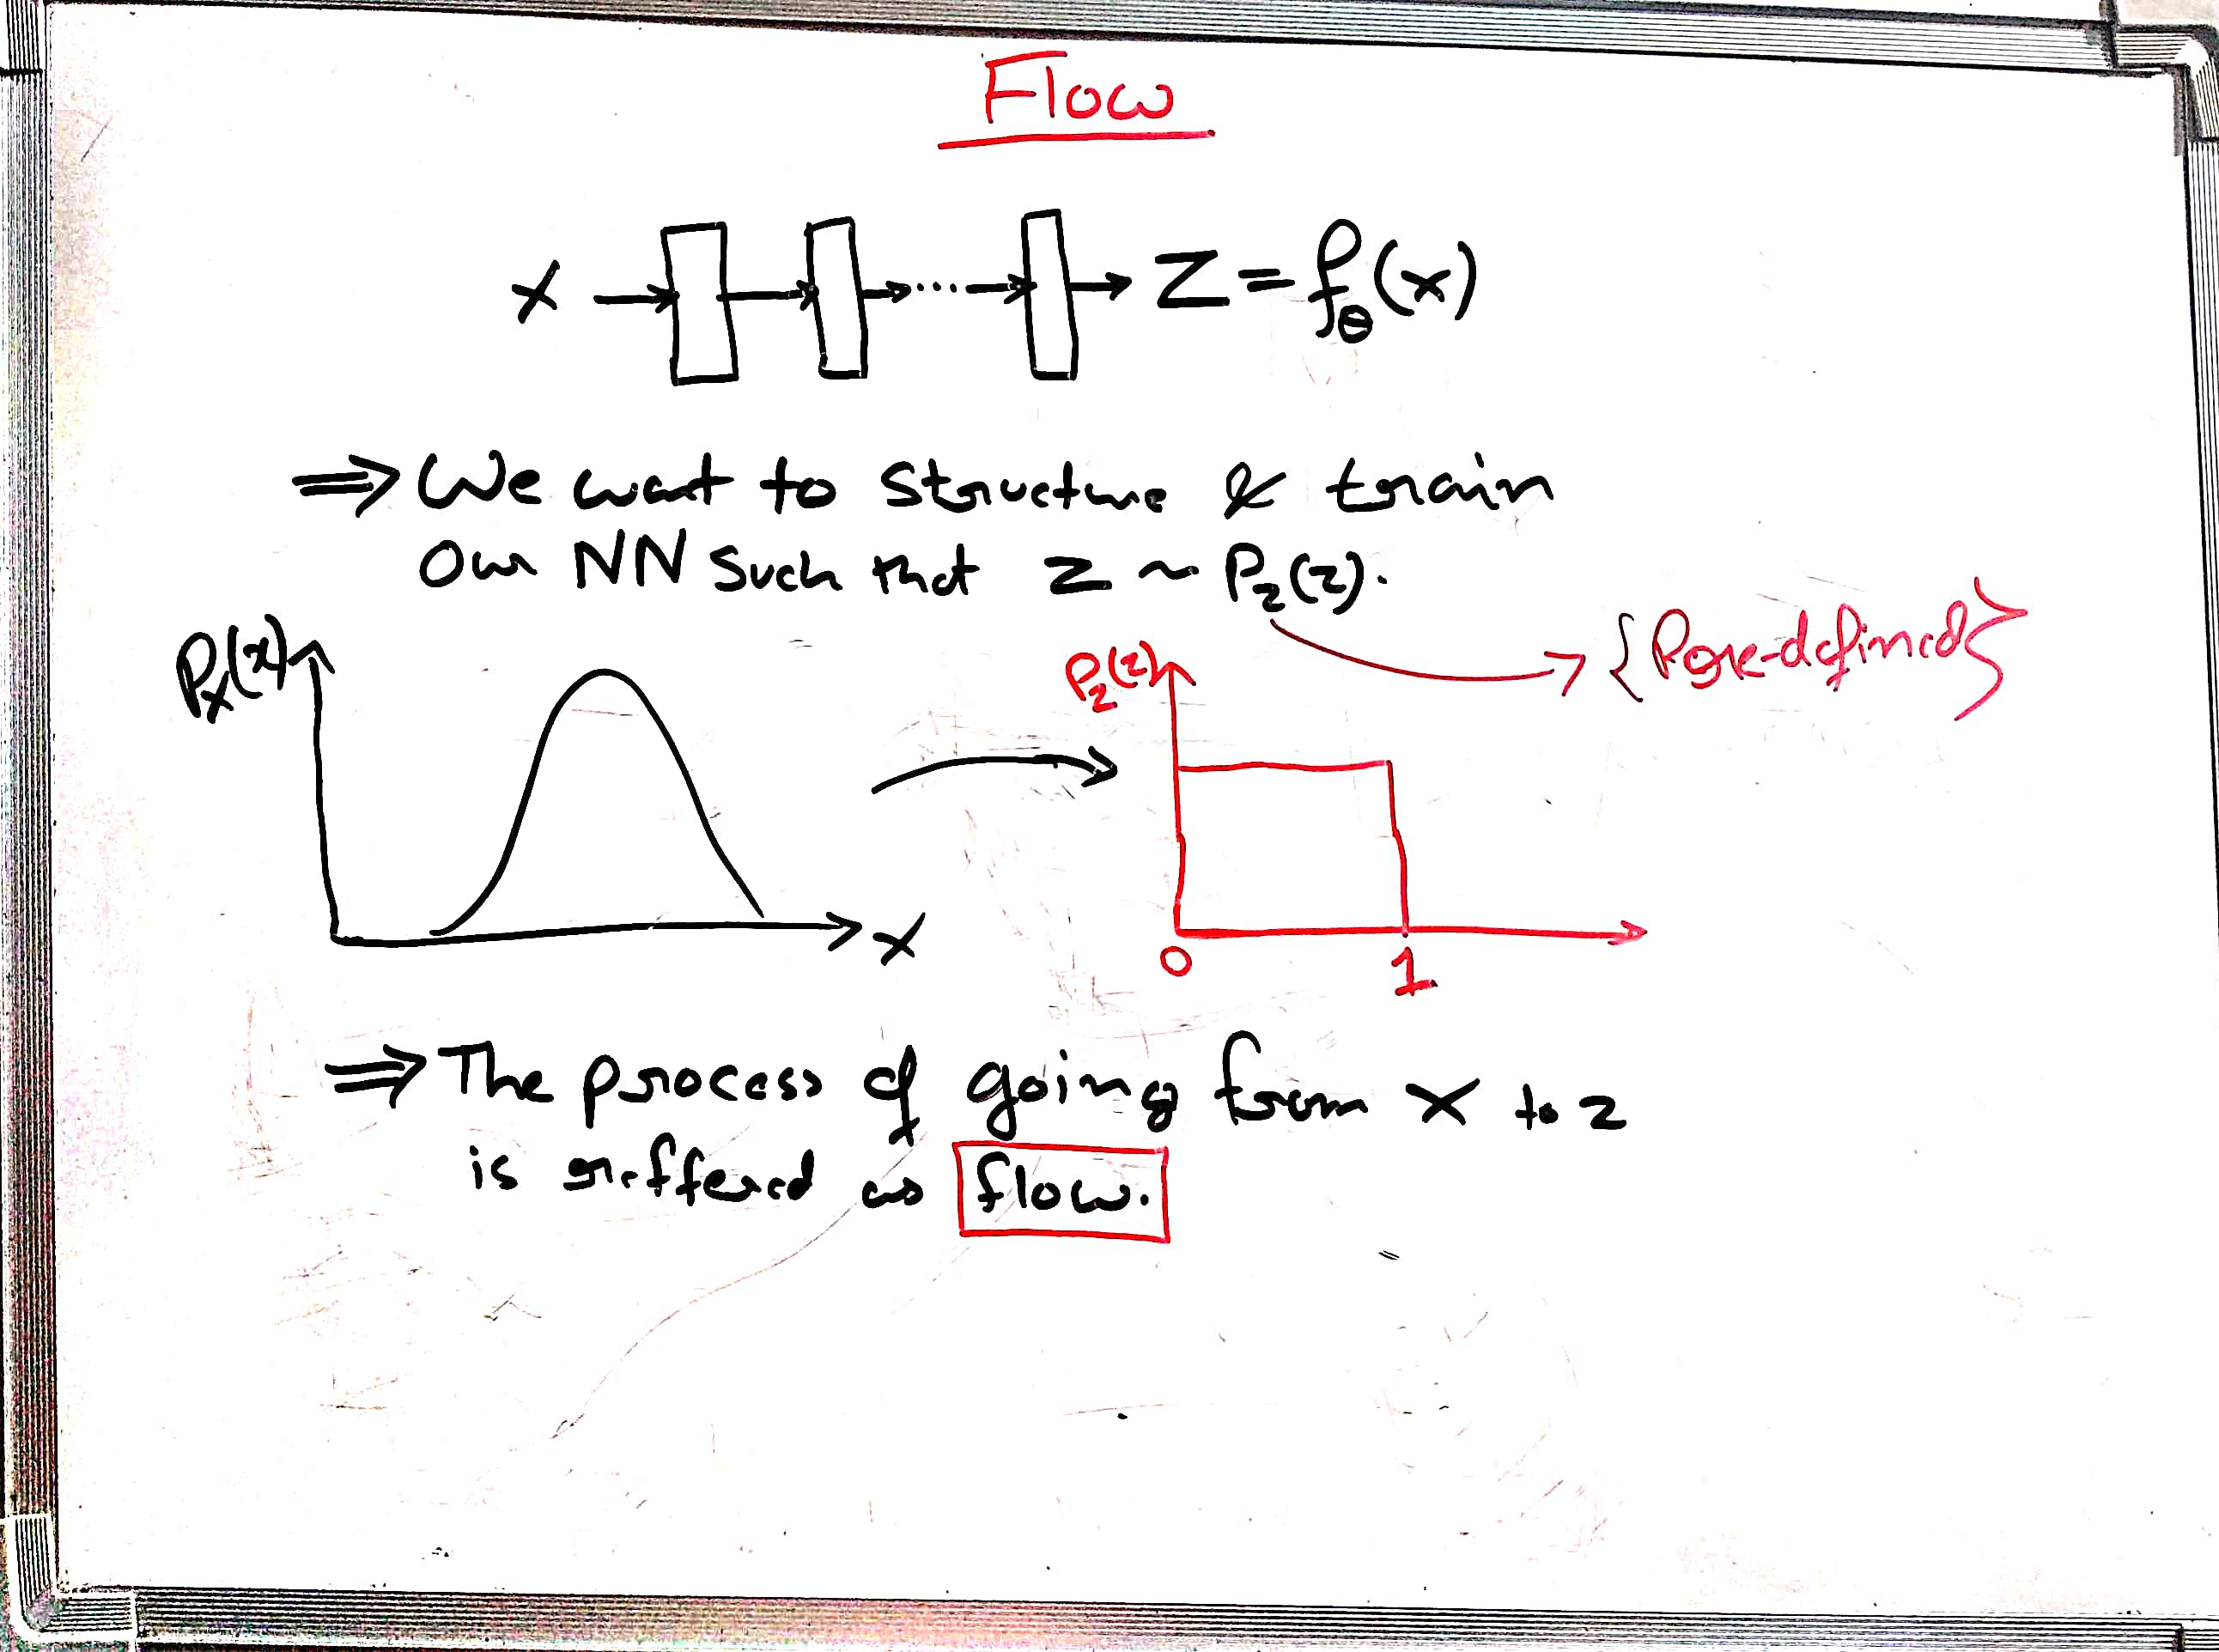 Flow
x → → ... → Z = fθ(x)
⇒ We want to structure & train
our NN such that z ~ Pz(z).
{Pre-defined}
Px(x)
Pz(z)
x
0 1
⇒ The process of going from x to z
is reffered as flow.